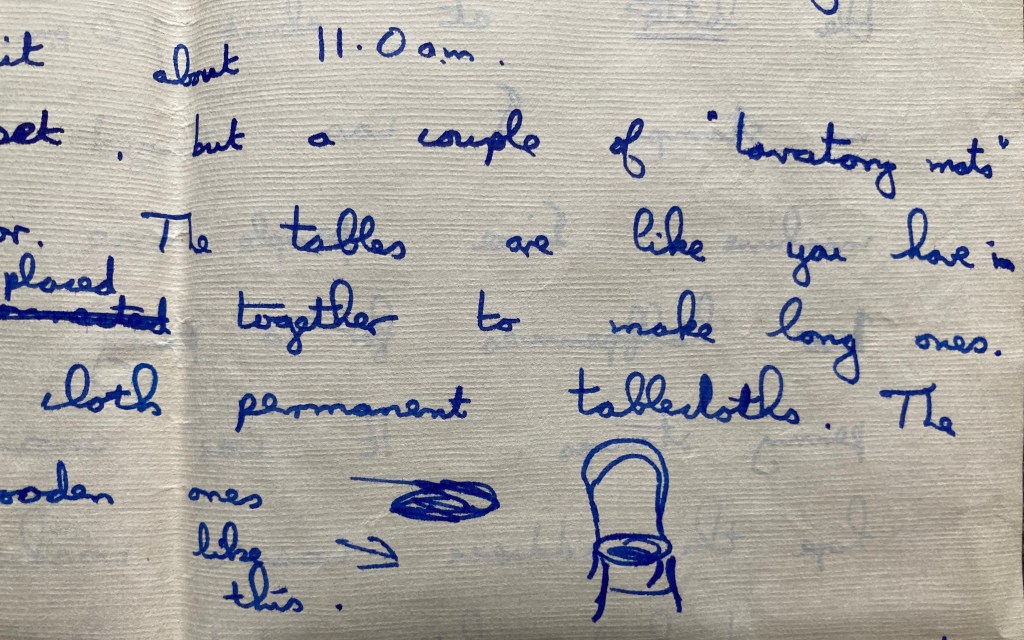 it about 11.0 a.m.
set, but a couple of "lavatory mats"
or. The tables are like you have in
placed
connected together to make long ones.
cloth permanent tablecloths. The
ooden ones
like
this.